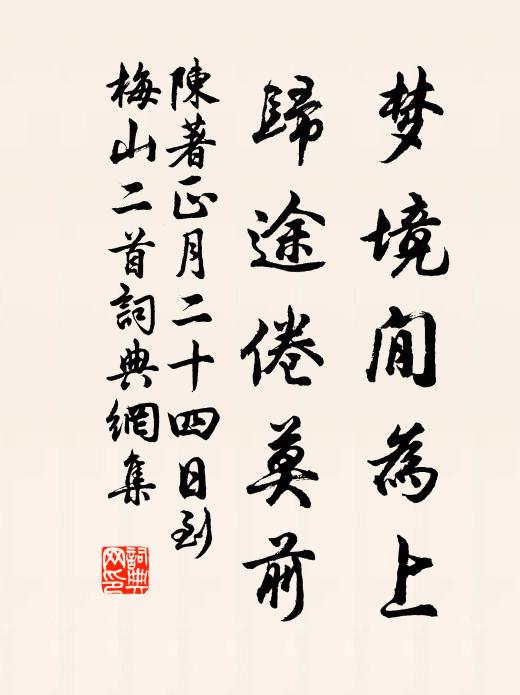 梦境閒為上
歸途倦莫前
陳著正月二十四日到
梅山二首詞典網集
詞典网印